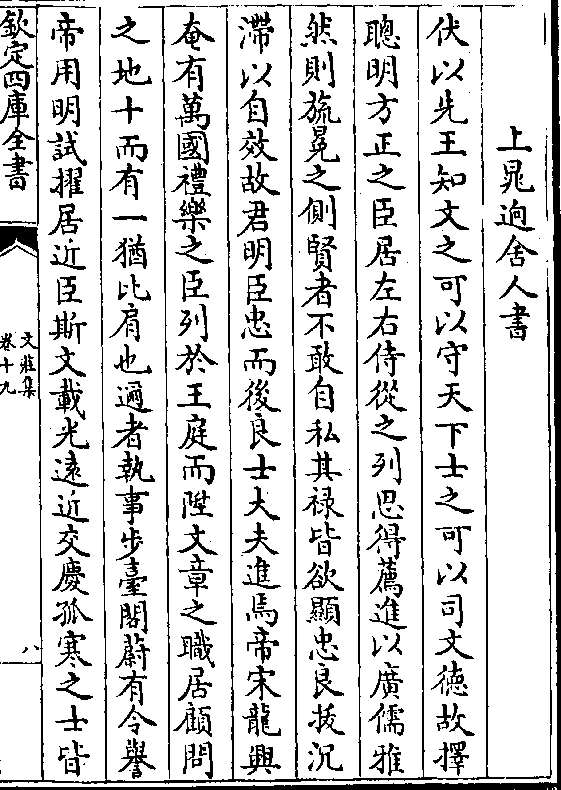 上晁迥舍人書
伏以先王知文之可以守天下士之可以司文德故擇
聰明方正之臣居左右侍從之列思得薦進以廣儒雅
然則旒冕之側賢者不敢自私其禄皆欲顯忠良抜沉
滯以自效故君明臣忠而後良士大夫進焉帝宋龍興
奄有萬國禮樂之臣列於王庭而陞文章之職居顧問
之地十而有一猶比肩也邇者執事步臺閣蔚有令譽
帝用明試擢居近臣斯文載光遠近交慶孤寒之士皆
欽定四庫全書
文莊集
卷十九
八